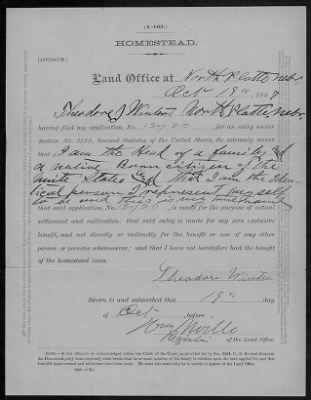 (4—063.)
HOMESTEAD.
(AFFIDAVIT.)
Land Office at North Platte Nebr,
Oct 19", 1887
I, Theodore J Winters North Platte, Nebr,
having filed my application, No. 13720 for an entry under
Section No. 2289, Revised Statutes of the United States, do solemnly swear
that I am the Head of a family and
a native Born citizen of the
United States and that I am the Iden-
tical person I represent myself
to be and this is my
that said application, No. is made for the purpose of actual
settlement and cultivation; that said entry is made for my own exclusive
benefit, and not directly or indirectly for the benefit or use of any other
person or persons whomsoever; and that I have not heretofore had the benefit
of the homestead laws.
Theodore Winters
Sworn to and subscribed this 19" day
of Oct before
Register of the Land Office.